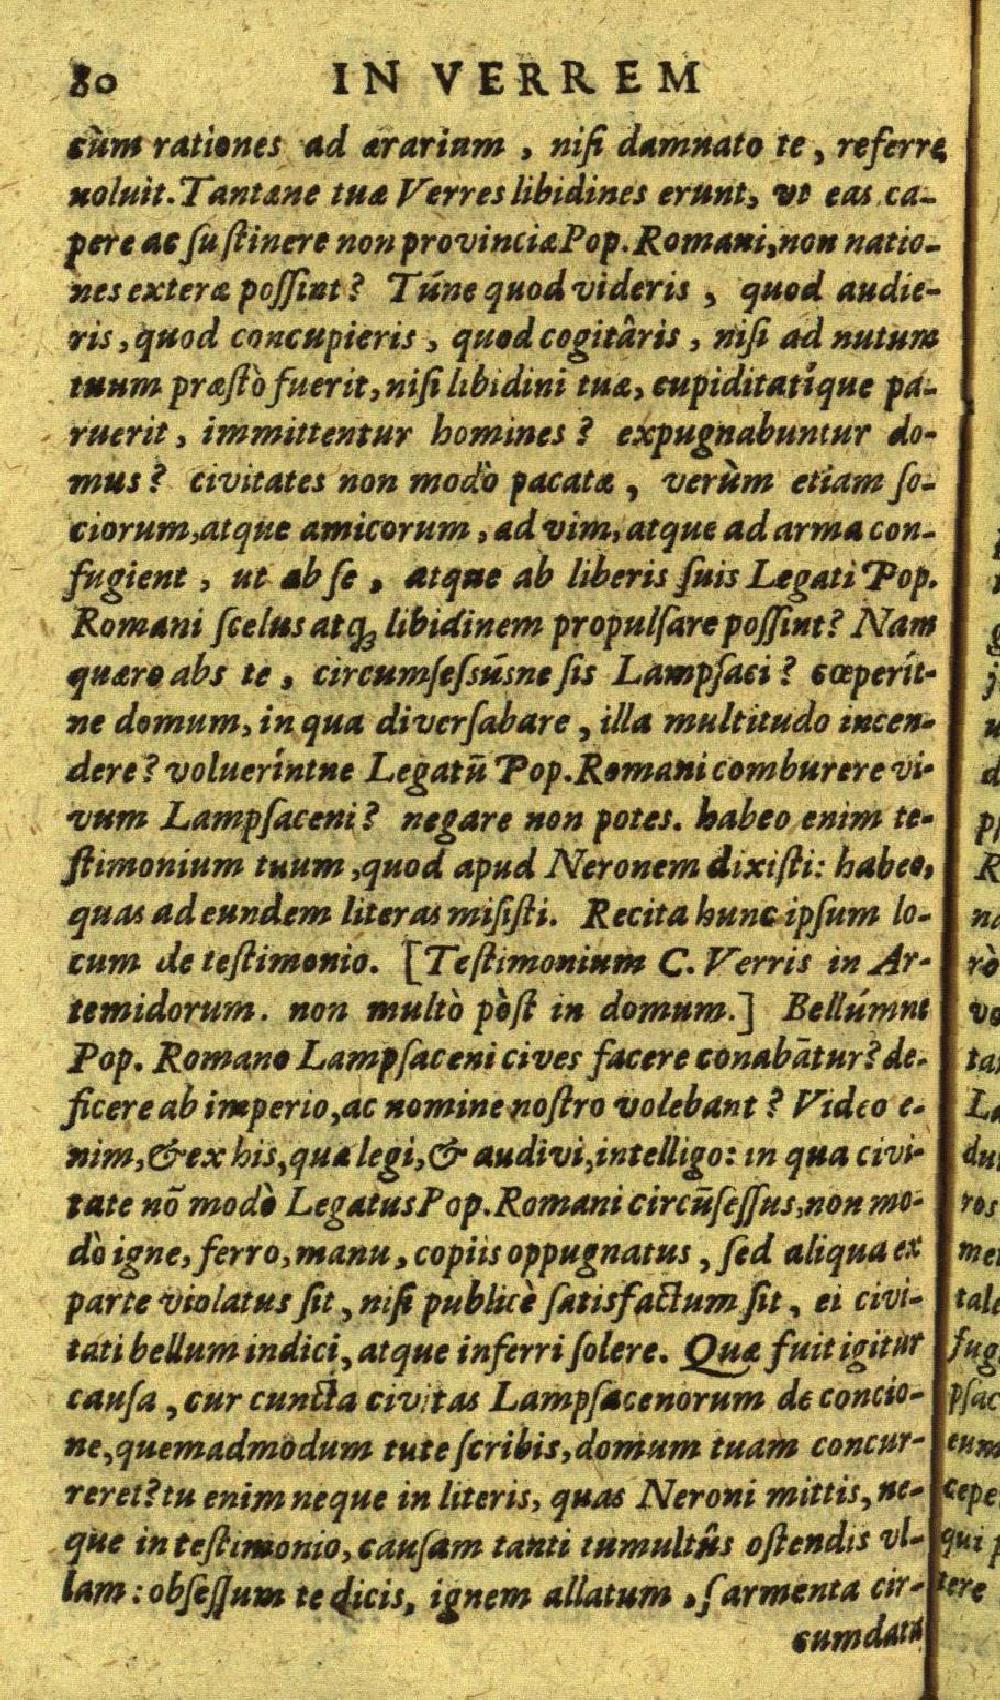 80 IN VERREM
cùm rationes ad ærarium, nisi damnato te, referre
uoluit. Tantæne tuæ Verres libidines erunt, vt eas ca-
pere ac sustinere non provinciæ Pop. Romani, non natio-
nes exteræ possint? Túne quod videris, quod audie-
ris, quod concupieris, quod cogitâris, nisi ad nutum
tuum præstò fuerit, nisi libidini tuæ, cupiditatíque pa-
ruerit, immittentur homines? expugnabuntur do-
mus? civitates non modò pacatæ, verùm etiam so-
ciorum, atque amicorum, ad vim, atque ad arma con-
fugient, ut ab se, atque ab liberis suis Legati Pop.
Romani scelus atq; libidinem propulsare possint? Nam
quæro abs te, circumsessúsne sis Lampsaci? cœperít-
ne domum, in qua diversabare, illa multitudo incen-
dere? voluerintne Legatū Pop. Romani comburere vi-
vum Lampsaceni? negare non potes. habeo enim te-
stimonium tuum, quod apud Neronem dixisti: habeo,
quas ad eundem literas misisti. Recita hunc ipsum lo-
cum de testimonio. [Testimonium C. Verris in Ar-
temidorum. non multò pòst in domum.] Bellúmne
Pop. Romano Lampsaceni cives facere conabātur? de-
ficere ab imperio, ac nomine nostro volebant? Video e-
nim, & ex his, quæ legi, & audivi, intelligo: in qua civi-
tate nō modò Legatus Pop. Romani circūsessus, non mo-
dò igne, ferro, manu, copiis oppugnatus, sed aliqua ex
parte violatus sit, nisi publicè satisfactum sit, ei civi-
tati bellum indici, atque inferri solere. Quæ fuit igitur
causa, cur cuncta civitas Lampsacenorum de concio-
ne, quemadmodum tute scribis, domum tuam concur-
reret? tu enim neque in literis, quas Neroni mittis, ne-
que in testimonio, causam tanti tumultûs ostendis vl-
lam: obsessum te dicis, ignem allatum, sarmenta cir-
cumdata